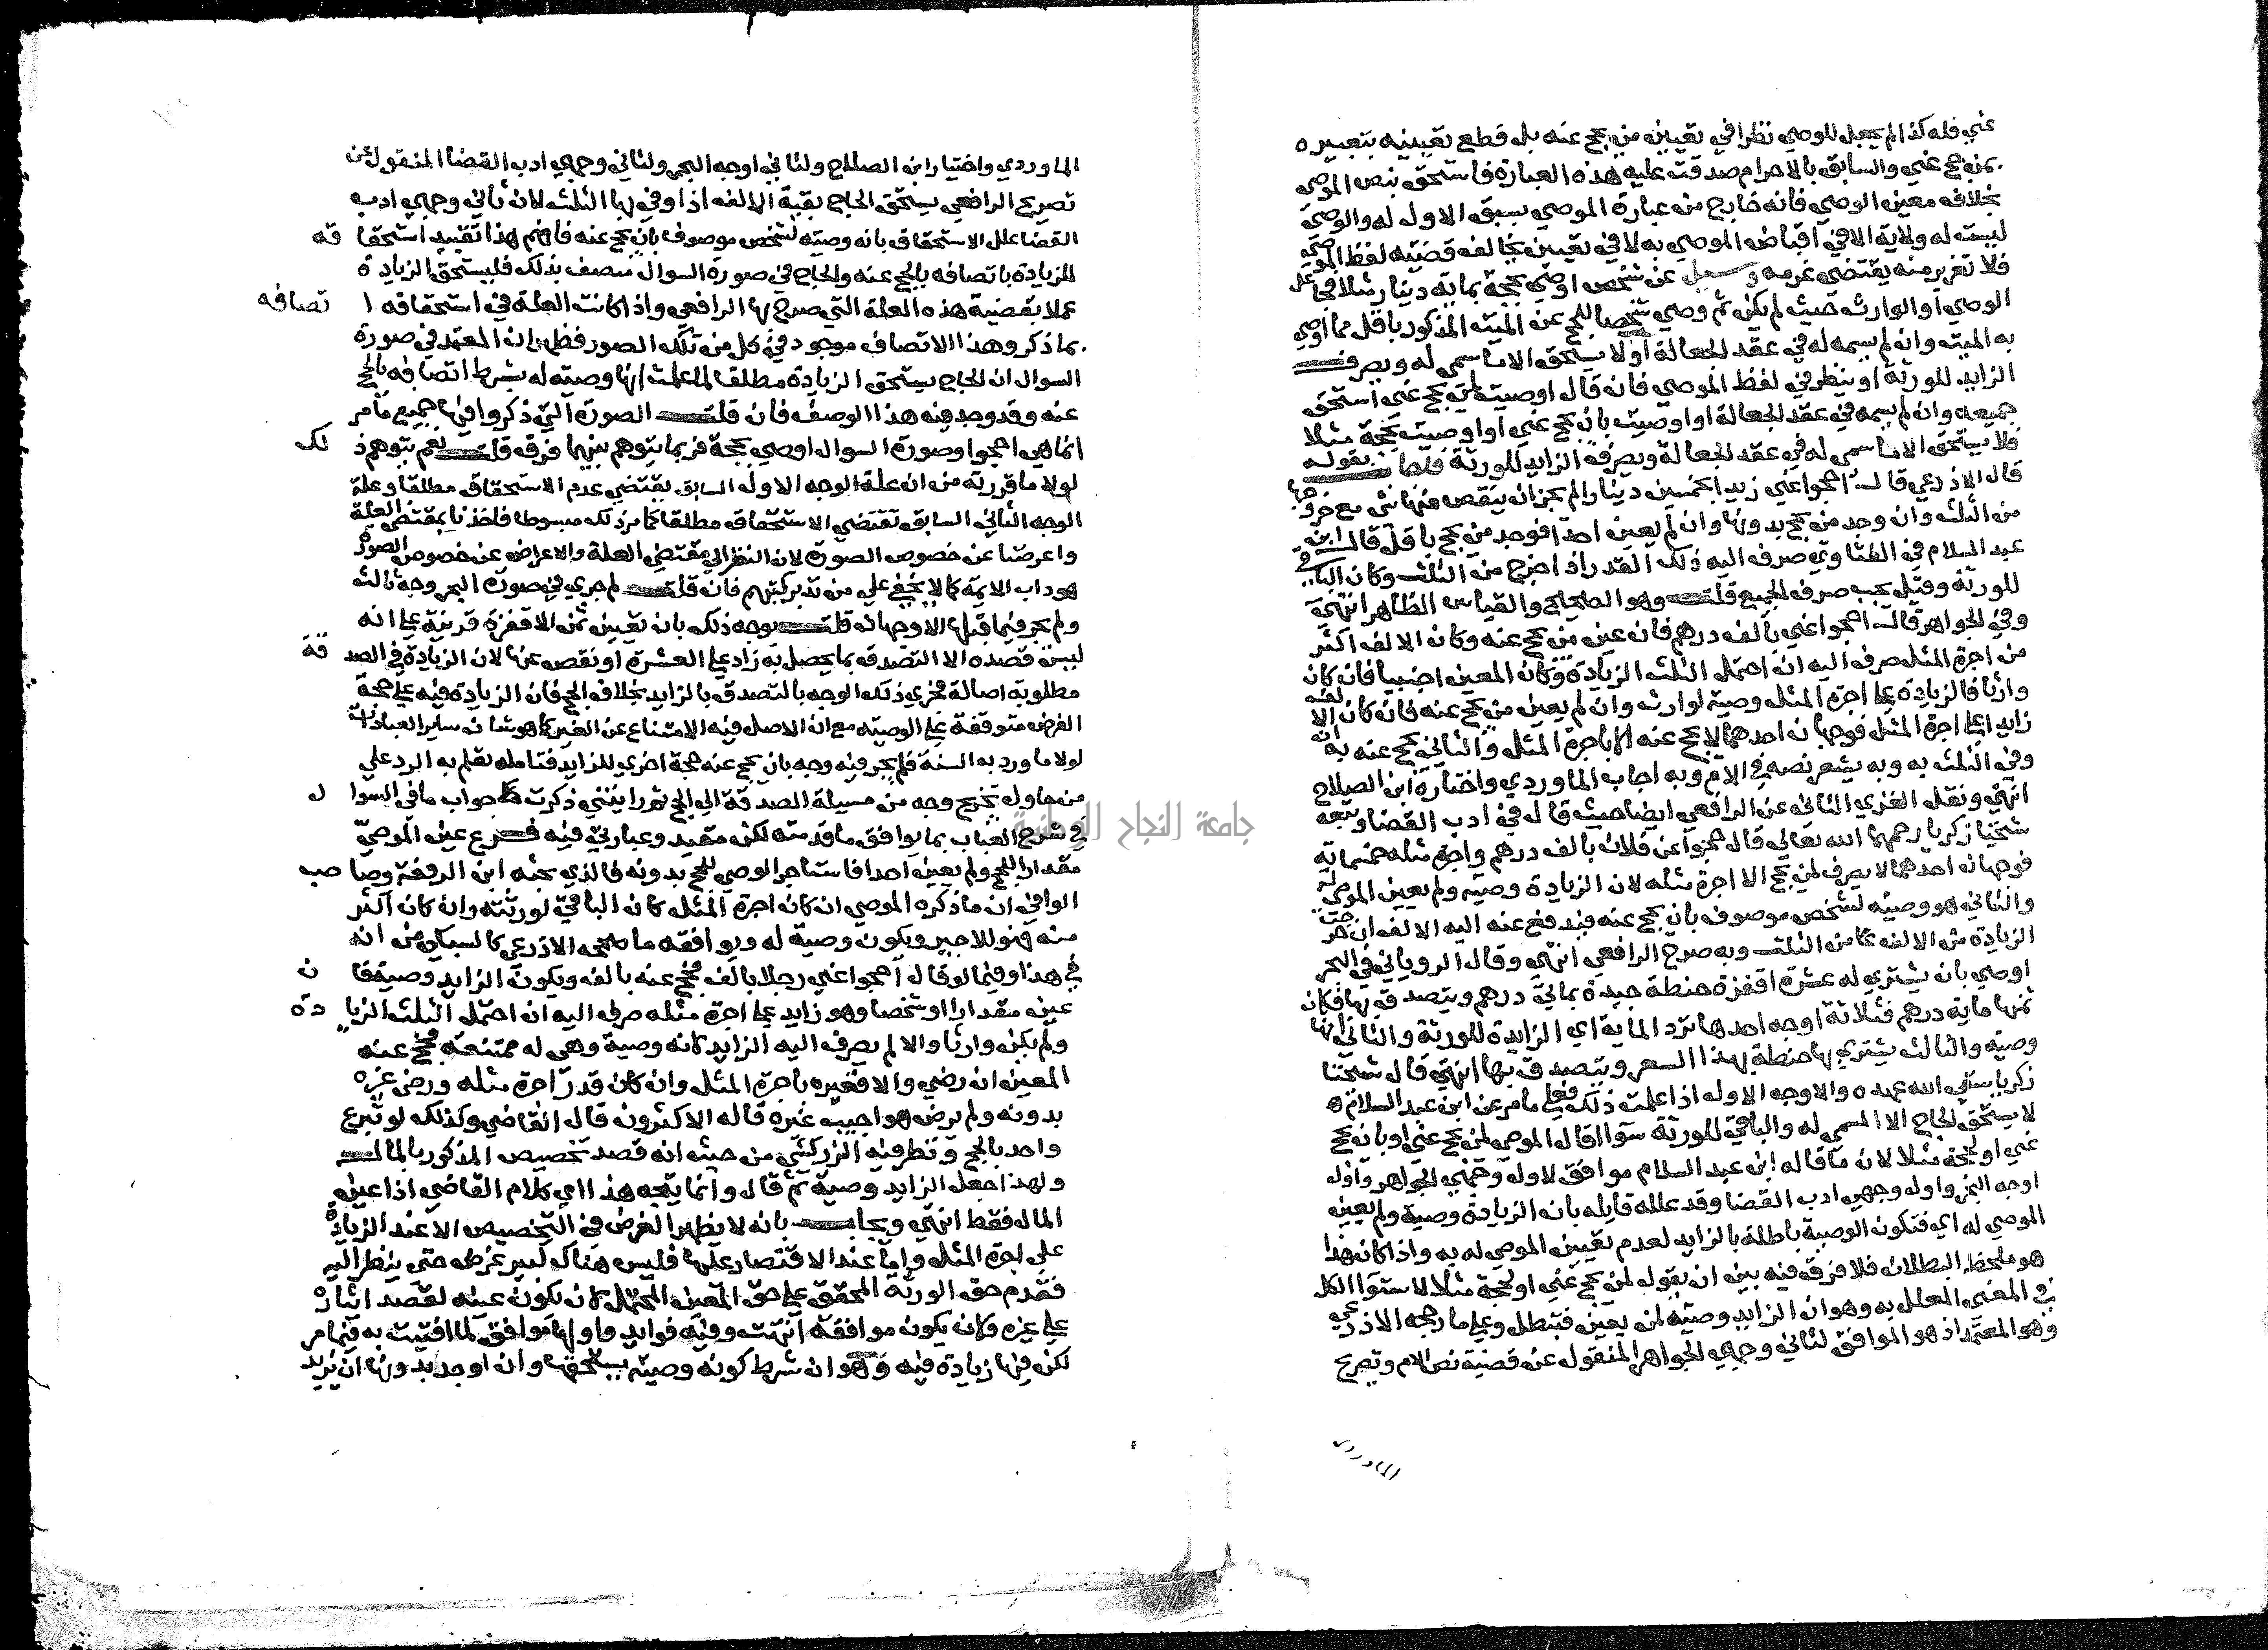 عني فله كذا لم يجعل للموصي نظرا في تعيين من يحج عنه بل قطع تعيينه بتعبيره
بمن حج عني والسابق بالاحرام صدقت عليه هذه العبارة فاستحق بنص الموصي
بخلاف معين الوصي فانه خارج من عبارة الموصي بسبق الاول له والوصي
ليست له ولاية الا في اقباض الموصي به لا في تعيين يخالف قضية لفظ الموصي
فلا تغرير منه يقتضي غرمه وسيل عن شخص اوصي بحجة بماية دينار مثلا فجاعل
الوصي او الوارث حيث لم يكن ثم وصي شخصا للحج عن الميت المذكور باقل مما اوصي
به الميت وان لم يسمه له في عقد الجعالة او لا يستحق الا ما سمي له ويصرف
الزايد للورثة او ينظر في لفظ الموصي فان قال اوصيت لمن يحج عني استحق
جميعه وان لم يسمه في عقد الجعالة او اوصيت بان يحج عني او اوصيت بحجة مثلا
فلا يستحق الا ما سمي له في عقد الجعالة ويصرف الزايد للورثة فاجاب بقوله
قال الاذرعي قال احجوا عني زيدا بخمسين دينارا لم يجز ان ينقص منها شي مع خروجها
من الثلث وان وجد من يحج بدونها وان لم يعين احدا فوجد من يحج باقل قال ابن
عبد السلام في الفتاوي صرف اليه ذلك القدر اذا خرج من الثلث وكان الباقي
للورثة وقيل يجب صرف الجميع قلت وهو الصحيح والقياس الظاهر انتهي
وفي الجواهر قال احجوا عني بالف درهم فان عين من يحج عنه وكان الالف اكثر
من اجرة المثل صرف اليه ان احتمل الثلث الزيادة وكان المعين اجنبيا فان كان
وارثا فالزيادة علي اجرة المثل وصية لوارث وان لم يعين من يحج عنه فان كان الالف
زايدا علي اجرة المثل فوجهان احدهما لا يحج عنه الا باجرة المثل والثاني يحج عنه به ان
وفي الثلث به وبه يشعر نصه في الام وبه اجاب الماوردي واختاره ابن الصلاح
انتهي ونقل الغزي الثاني عن الرافعي ايضا حيث قال في ادب القضا وتبعه
شيخنا زكريا رحمهما الله تعالي قال حجوا عن فلان بالف درهم واجرة مثله خمسماية
فوجهان احدهما لا يصرف لمن يحج الا اجرة مثله لان الزيادة وصية ولم يعين الموصي له
والثاني هو وصية لشخص موصوف بان يحج عنه فيدفع عنه اليه الالف ان خرجت
الزيادة من الالف كما من الثلث وبه صرح الرافعي انتهي وقال الروياني في البحر
اوصي بان يشتري له عشرة اقفزة حنطة جيدة بمايتي درهم ويتصدق بها فكان
ثمنها ماية درهم فثلاثة اوجه احدها ترد الماية اي الزايدة للورثة والثاني انها
وصية والثالث يشتري بها حنطة بهذا السعر ويتصدق بها انتهي قال شيخنا
زكريا سقي الله عهده والاوجه الاول اذا علمت ذلك فعلي ما مر عن ابن عبد السلام
لا يستحق الحاج الا المسمي له والباقي للورثة سوا قال الموصي لمن يحج عني او بان يحج
عني او بحجة مثلا لان ما قاله ابن عبد السلام موافق لاول وجهي الجواهر واول
اوجه البحر واول وجهي ادب القضا وقد علله قايله بان الزيادة وصية ولم يعين
الموصي له اي فتكون الوصية باطلة بالزايد لعدم تعيين الموصي له به واذا كان هذا
هو ملحظ البطلان فلا فرق فيه بين ان يقول لمن يحج عني او بحجة مثلا لاستوا الكل
في المعني المعلل به وهو ان الزايد وصية لمن يعين فتبطل وعلي ما رجحه الاذرعي
وهو المعتمد اذ هو الموافق لثاني وجهي الجواهر المنقول عن قضية نص الام وتصريح
الماوردي
الماوردي واختيار ابن الصلاح ولثاني اوجه البحر ولثاني وجهي ادب القضا المنقول عن
تصريح الرافعي يستحق الحاج بقية الالف اذا وفي بها الثلث لان ثاني وجهي ادب
القضا علل الاستحقاق بانه وصية لشخص موصوف بان يحج عنه فافهم هذا تقييد استحقاقه
للزيادة باتصافه بالحج عنه والحاج في صورة السوال متصف بذلك فليستحق الزيادة
عملا بقضية هذه العلة التي صرح بها الرافعي واذا كانت العلة في استحقاقه اتصافه
بما ذكر وهذا الاتصاف موجود في كل من تلك الصور فظهر ان المعتمد في صورة
السوال ان الحاج يستحق الزيادة مطلقا لما علمت انها وصية له بشرط اتصافه بالحج
عنه وقد وجد فيه هذا الوصف فان قلت الصورة التي ذكروا فيها جميع ما مر
انما هي احجوا وصورة السوال اوصي بحجة فربما يتوهم بينهما فرق قلت نعم يتوهم ذلك
لولا ما قررته من ان علة الوجه الاول السابق يقتضي عدم الاستحقاق مطلقا وعلة
الوجه الثاني السابق تقتضي الاستحقاق مطلقا كما مر ذلك مبسوطا فاخذنا بمقتضي العلة
واعرضنا عن خصوص الصورة لان النظر الي مقتضي العلة والاعراض عن خصوص الصورة
هو داب الايمة كما لا يخفي علي من تدبر كتبهم فان قلت لم جري في صورة البحر وجه ثالث
ولم يجر فيما قبلها الا وجهان قلت يوجه ذلك بان تعيين ثمن الاقفزة قرينة علي انه
ليس قصده الا التصدق بما يحصل به زاد علي العشرة او نقص عنها لان الزيادة في الصدقة
مطلوبة اصالة فجري ذلك الوجه بالتصدق بالزايد بخلاف الحج فان الزيادة فيه علي حجة
الفرض متوقفة علي الوصية مع ان الاصل فيه الامتناع عن الغير كما هو شان ساير العبادات
لولا ما ورد به السنة فلم يجر فيه وجه بان يحج عنه حجة اخري للزايد فتامله تعلم به الرد علي
من حاول تخريج وجه من مسيلة الصدقة الي الحج ثم رايتني ذكرت جواب ما في السوال
في شرح العباب بما يوافق ما قدمته لكن مقيد وعبارتي فيه فرع عين الموصي
مقدارا للحج ولم يعين احدا فاستاجر الوصي للحج بدونه فالذي بحثه ابن الرفعة وصاحب
الوافي ان ما ذكره الموصي ان كان اجرة المثل كان الباقي لورثته وان كان اكثر
منه فهو للاجير ويكون وصية له ويوافقه ما صححه الاذرعي كالسبكي من انه
في هذا وفيما لو قال احجوا عني رجلا بالف يحج عنه بالف ويكون الزايد وصية فان
عين مقدارا او شخصا وهو زايد علي اجرة مثله صرف اليه ان احتمل الثلث الزيادة
ولم يكن وارثا والا لم يصرف اليه الزايد كانه وصية وهي له ممتنعة فيحج عنه
المعين ان رضي والا فغيره باجرة المثل وان كان قدر اجرة مثله ورضي غيره
بدونه ولم يرض هو اجيب غيره قاله الاكثرون قال القاضي وكذلك لو تبرع
واحد بالحج ونظر فيه الزركشي من حيث انه قصد تخصيص المذكور بالمال
ولهذا جعل الزايد وصية ثم قال وانما يتجه هذا اي كلام القاضي اذا عين
المال فقط انتهي ويجاب بانه لا يظهر الغرض في التخصيص الا عند الزيادة
علي اجرة المثل واما عند الاقتصار عليها فليس هناك كبير غرض حتي ينظر اليه
فقدم حق الورثة المحقق علي حق المعين المحتمل لان يكون عينه لقصد ايثاره
علي غيره وكان يكون موافقة انتهت وفيه فوايد واولها موافق لما افتيت به فيما مر
لكن فيها زيادة فيه وهو ان شرط كونه وصية يستحقها وان اوجد بدونها ان يزيد
جامعة النجاح الوطنية